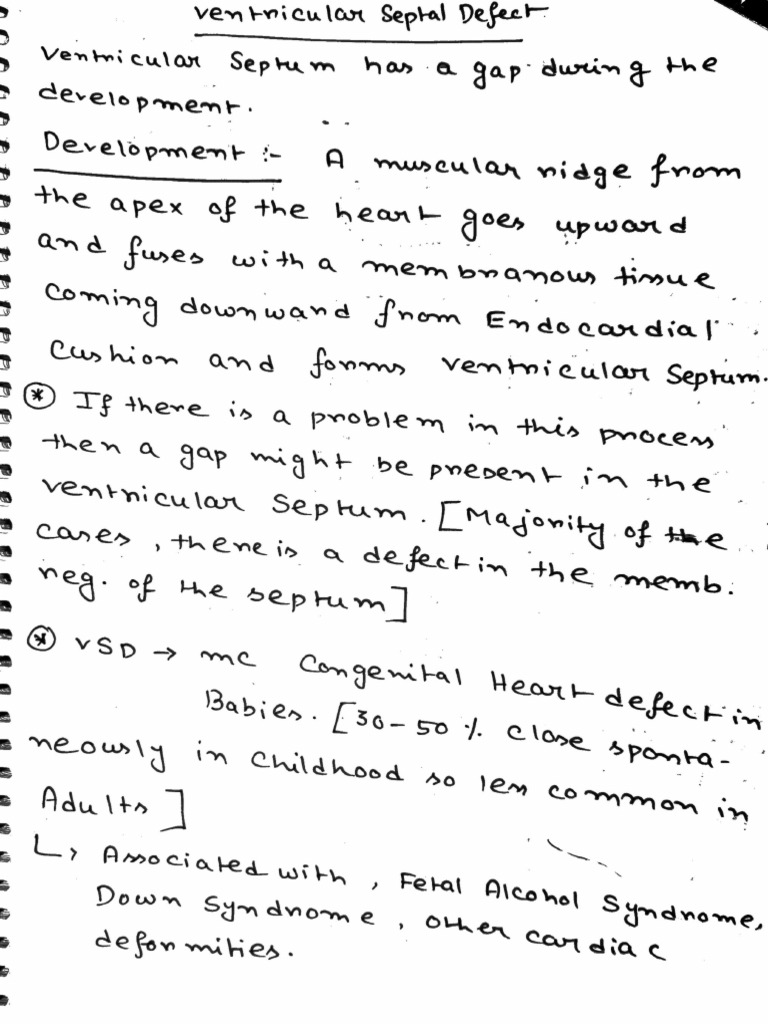 Ventricular Septal Defect
Ventricular Septum has a gap during the
development.
Development :- A muscular ridge from
the apex of the heart goes upward
and fuses with a membranous tissue
coming downward from Endocardial
Cushion and forms ventricular Septum.
* If there is a problem in this process
then a gap might be present in the
ventricular Septum. [Majority of the
cases, there is a defect in the memb.
reg. of the septum]
* VSD → mc Congenital Heart defect in
Babies. [30-50 % close sponta-
neously in childhood so less common in
Adults]
↳ Associated with, Fetal Alcohol Syndrome,
Down Syndrome, other cardiac
deformities.